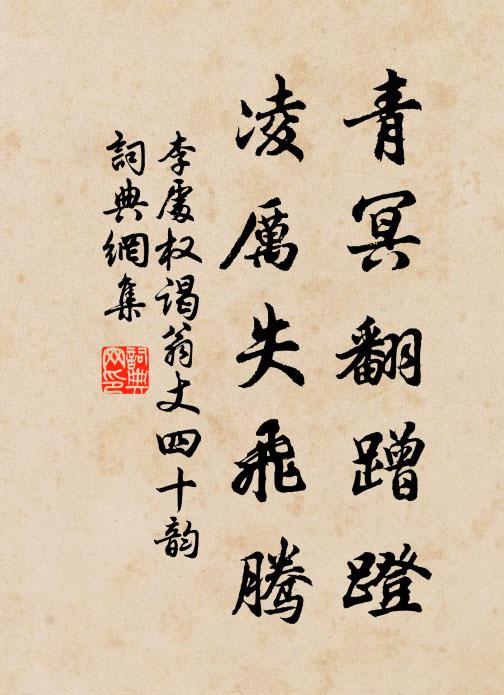 青冥翻蹭蹬
凌厲失飛騰
李處权謁翁丈四十韵
詞典網集
詞典网印